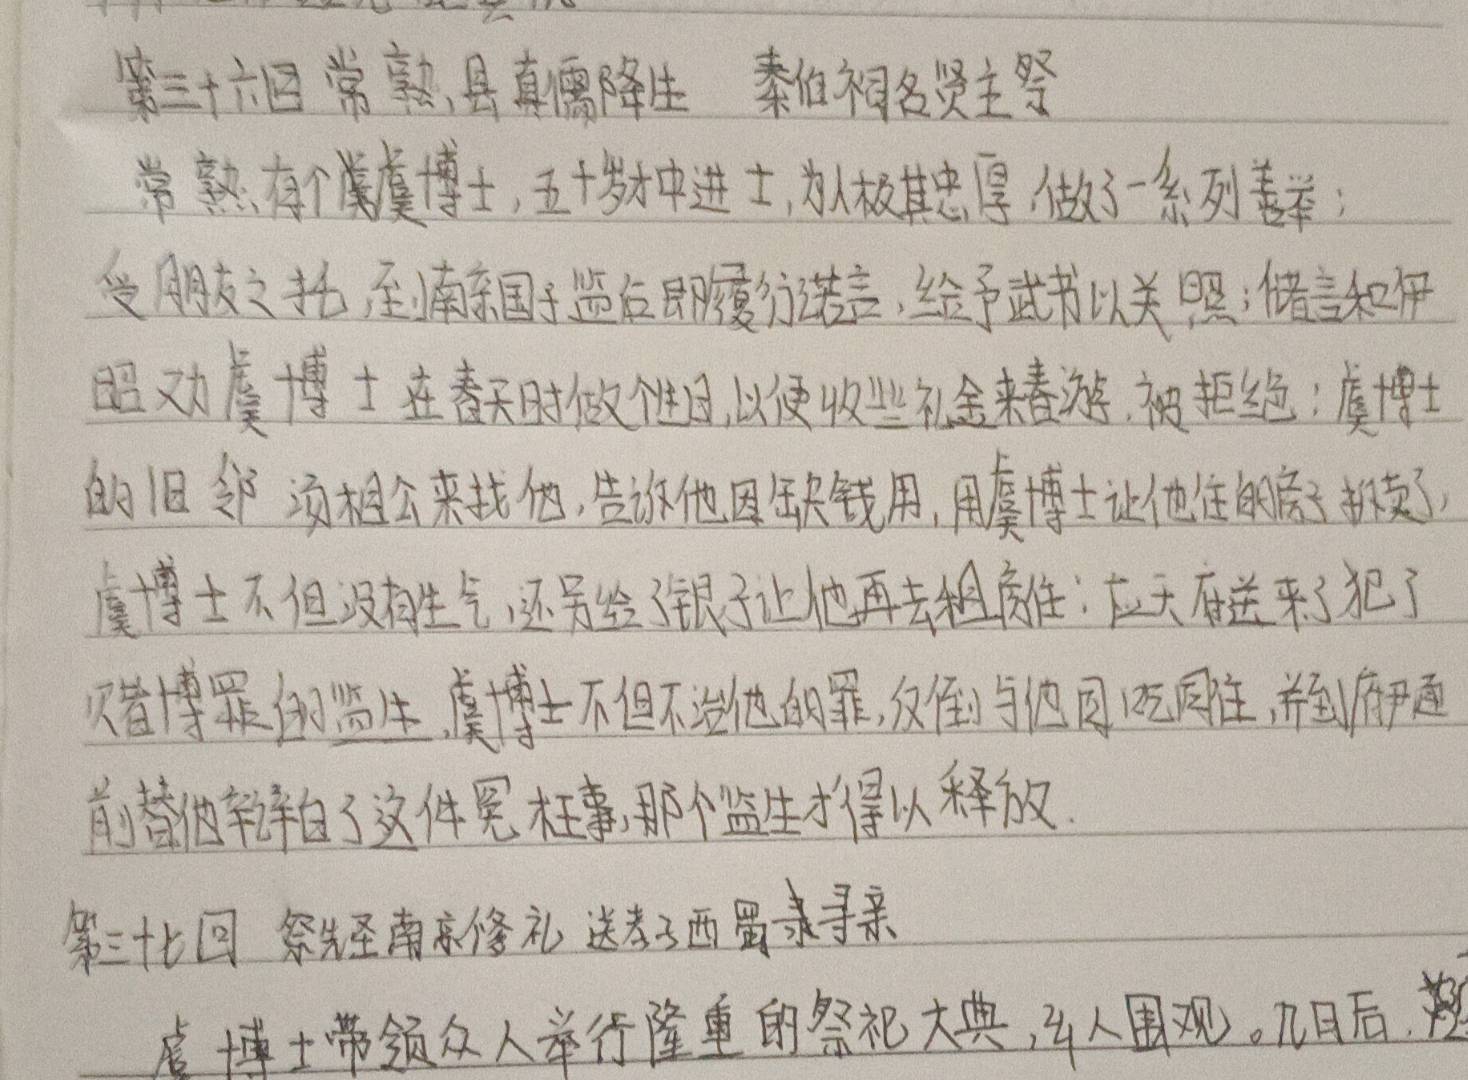 第三十六回 常熟县真儒降生 泰伯祠名贤主祭
常熟有个虞博士,五十岁才中进士,为人极其忠厚,做了一系列善举;
受朋友之托,到南京国子监后即履行诺言,给予武书以关照;储言和伊
昭劝虞博士在春天时做个生日,以便收些礼金来春游,被拒绝;虞博士
的旧邻汤相公来找他,告诉他因缺钱用,用虞博士让他住的房子拆卖了,
虞博士不但没有生气,还另给了银子让他再去租房住;应天府送来了犯了
赌博罪的监生,虞博士不但不治他的罪,反倒与他同吃同住,并到府尹面
前替他辩白了这件冤枉事,那个监生才得以释放.
第三十七回 祭先圣南京修礼 送孝子西蜀寻亲
虞博士带领众人举行隆重的祭祀大典,人围观。九日后,